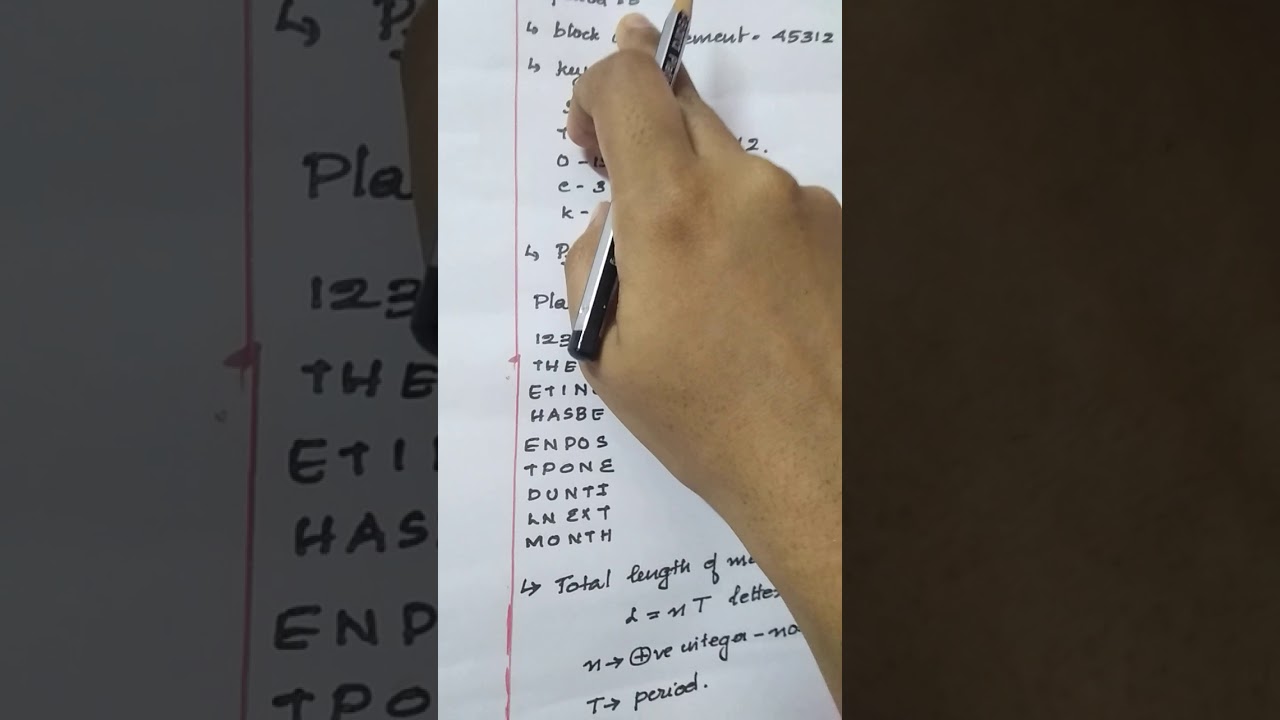 ↳ block ement - 45312
↳ key
12.
O - 1
e - 3
k -
↳ P
Pla
123
THE
ETIN
HASBE
ENPOS
TPONE
DUNTI
LNEXT
MONTH
↳ Total length of me
L = n T lette
n → ⊕ve integer - no
T → period.